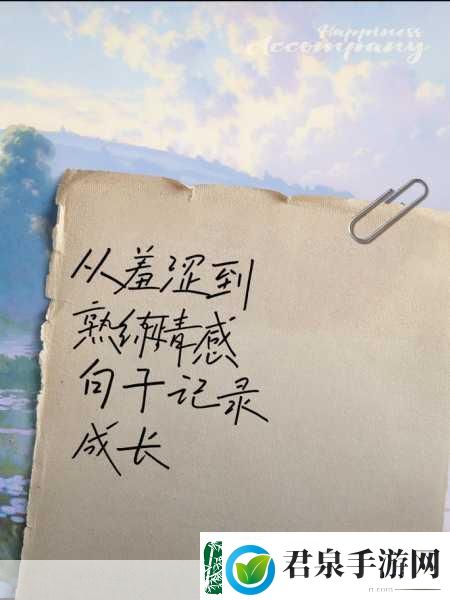 Happiness
Accompany
从羞涩到
熟练情感
句子记录
成长
君泉手游网